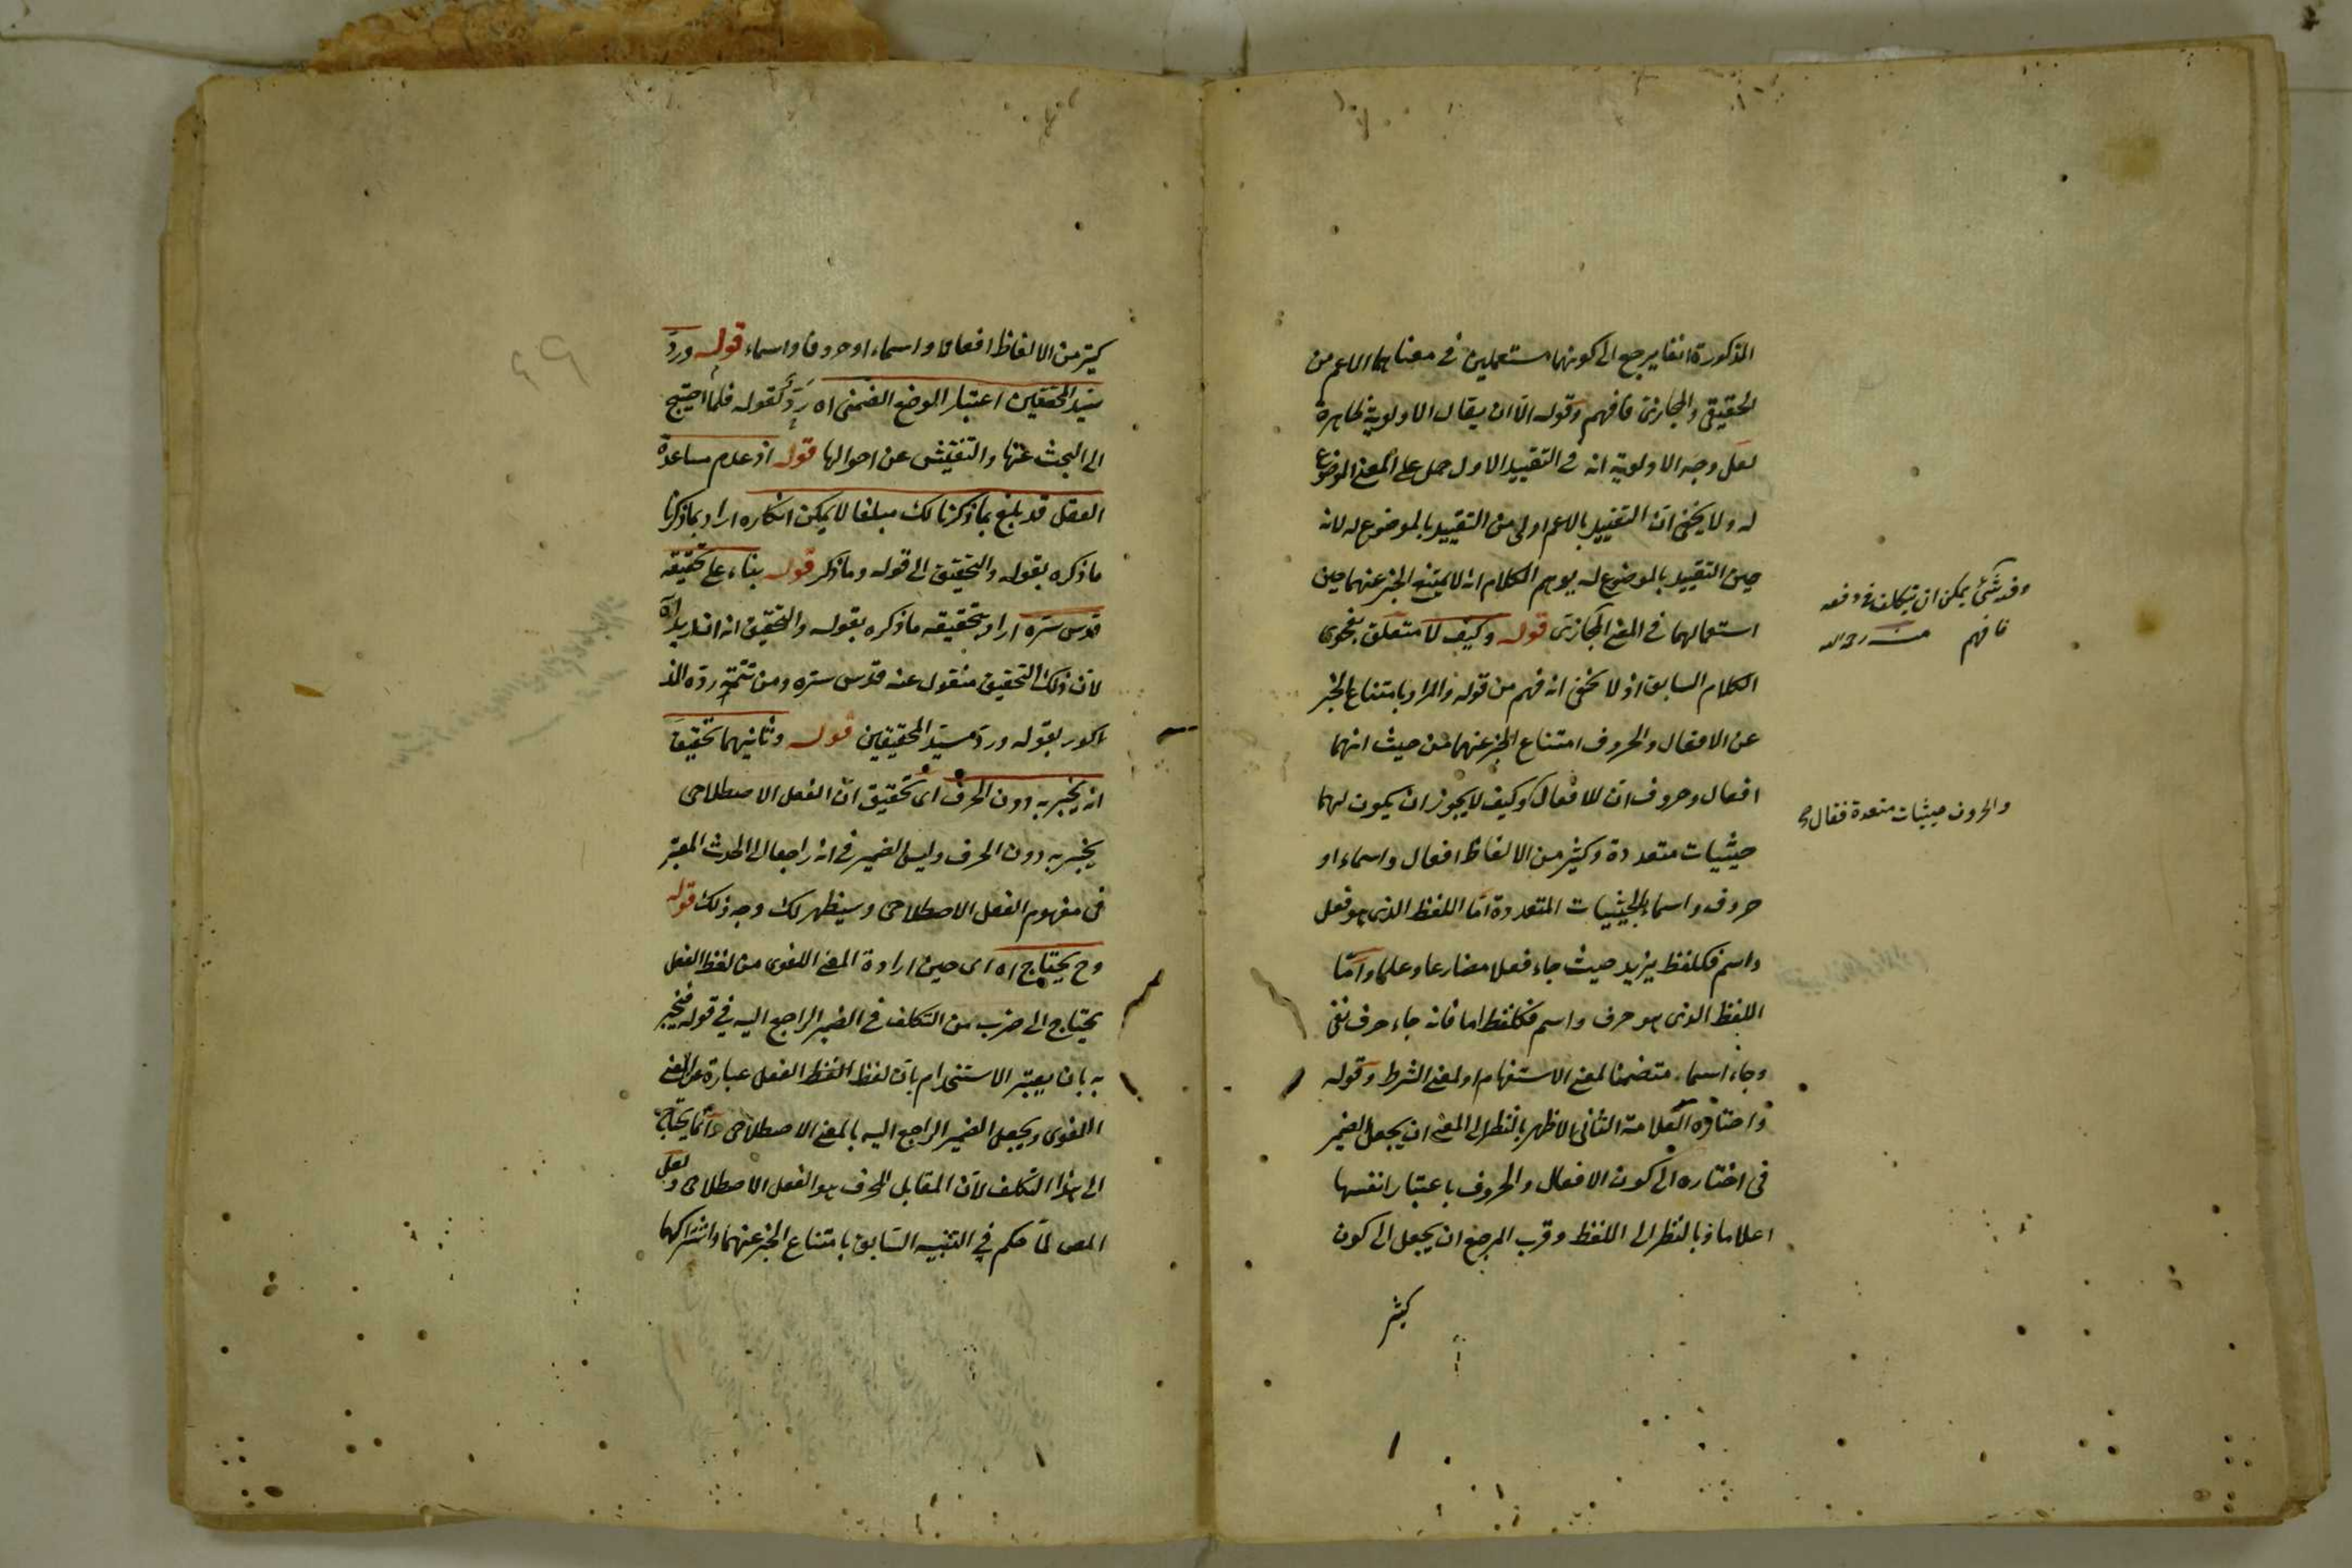 المذكورة انفا يرجع الى كونهما مستعملين في معناهما الاعم من
الحقيقي والمجازي فافهم وقوله الا ان يقال الاولوية ظاهرة
لعل وجه الاولوية انه في التقييد الاول حمل على المعنى الموضوع
له ولا يخفى ان التقييد بالاعم اولى من التقييد بالموضوع له لانه
حين التقييد بالموضوع له يوهم الكلام انه لا يمتنع الخبر عنهما حين
استعمالهما في المعنى المجازي قوله وكيف لا متعلق بفحوى
الكلام السابق اذ لا يخفى انه فهم من قوله والمراد بامتناع الخبر
عن الافعال والحروف امتناع الخبر عنهما من حيث انهما
افعال وحروف ان للافعال وكيف لا يجوز ان يكون لهما
حيثيات متعددة وكثير من الالفاظ افعال واسماء او
حروف واسماء بالحيثيات المتعددة اما اللفظ الذي هو فعل
واسم فكلفظ يزيد حيث جاء فعلا مضارعا وعلما واما
اللفظ الذي هو حرف واسم فكلفظ اما فانه جاء حرف نفي
وجاء اسما متضمنا لمعنى الاستفهام او لمعنى الشرط وقوله
واختاره العلامة الثاني الاظهر بالنظر الى المعنى ان يجعل الضمير
في اختاره الى كون الافعال والحروف باعتبار انفسها
اعلاما وبالنظر الى اللفظ وقرب المرجع ان يجعل الى كون
كثير
يمكن ان يتكلف في دفعه
فافهم منه رحمه الله
والحروف حيثيات متعددة فقال
كثير من الالفاظ افعالا واسماء او حروفا واسماء قوله ورد
سيد المحققين اعتبار الوضع الضمني اه رد لقوله فلما احتيج
الى البحث عنها والتفتيش عن احوالها قوله اذ عدم مساعدة
العقل قد بلغ بما ذكرنا لك مبلغا لا يمكن انكاره اراد بما ذكرنا
ما ذكره بقوله والتحقيق الى قوله وما ذكر قوله بناء على تحقيقه
قدس سره اراد بتحقيقه ما ذكره بقوله والتحقيق انه اذا اريد اه
لان ذلك التحقيق منقول عنه قدس سره ومن تتمة رده المذ
كور بقوله ورد سيد المحققين قوله وثانيهما تحقيق
انه يخبر به دون الحرف اي تحقيق ان الفعل الاصطلاحي
يخبر به دون الحرف وليس الضمير في انه راجعا الى الحدث المعتبر
في مفهوم الفعل الاصطلاحي وسيظهر لك وجه ذلك قوله
وح يحتاج اه اي حين ارادة المعنى اللغوي من لفظ الفعل
يحتاج الى ضرب من التكلف في الضمير الراجع اليه في قوله فيخبر
به بان يعتبر الاستخدام بان لفظ الفعل عبارة عن المعنى
اللغوي ويجعل الضمير الراجع اليه بالمعنى الاصطلاحي وانما يحتاج
الى هذا التكلف لان المقابل للحرف هو الفعل الاصطلاحي ولعل
المص لما حكم في التنبيه السابق بامتناع الخبر عنهما واشتراكهما